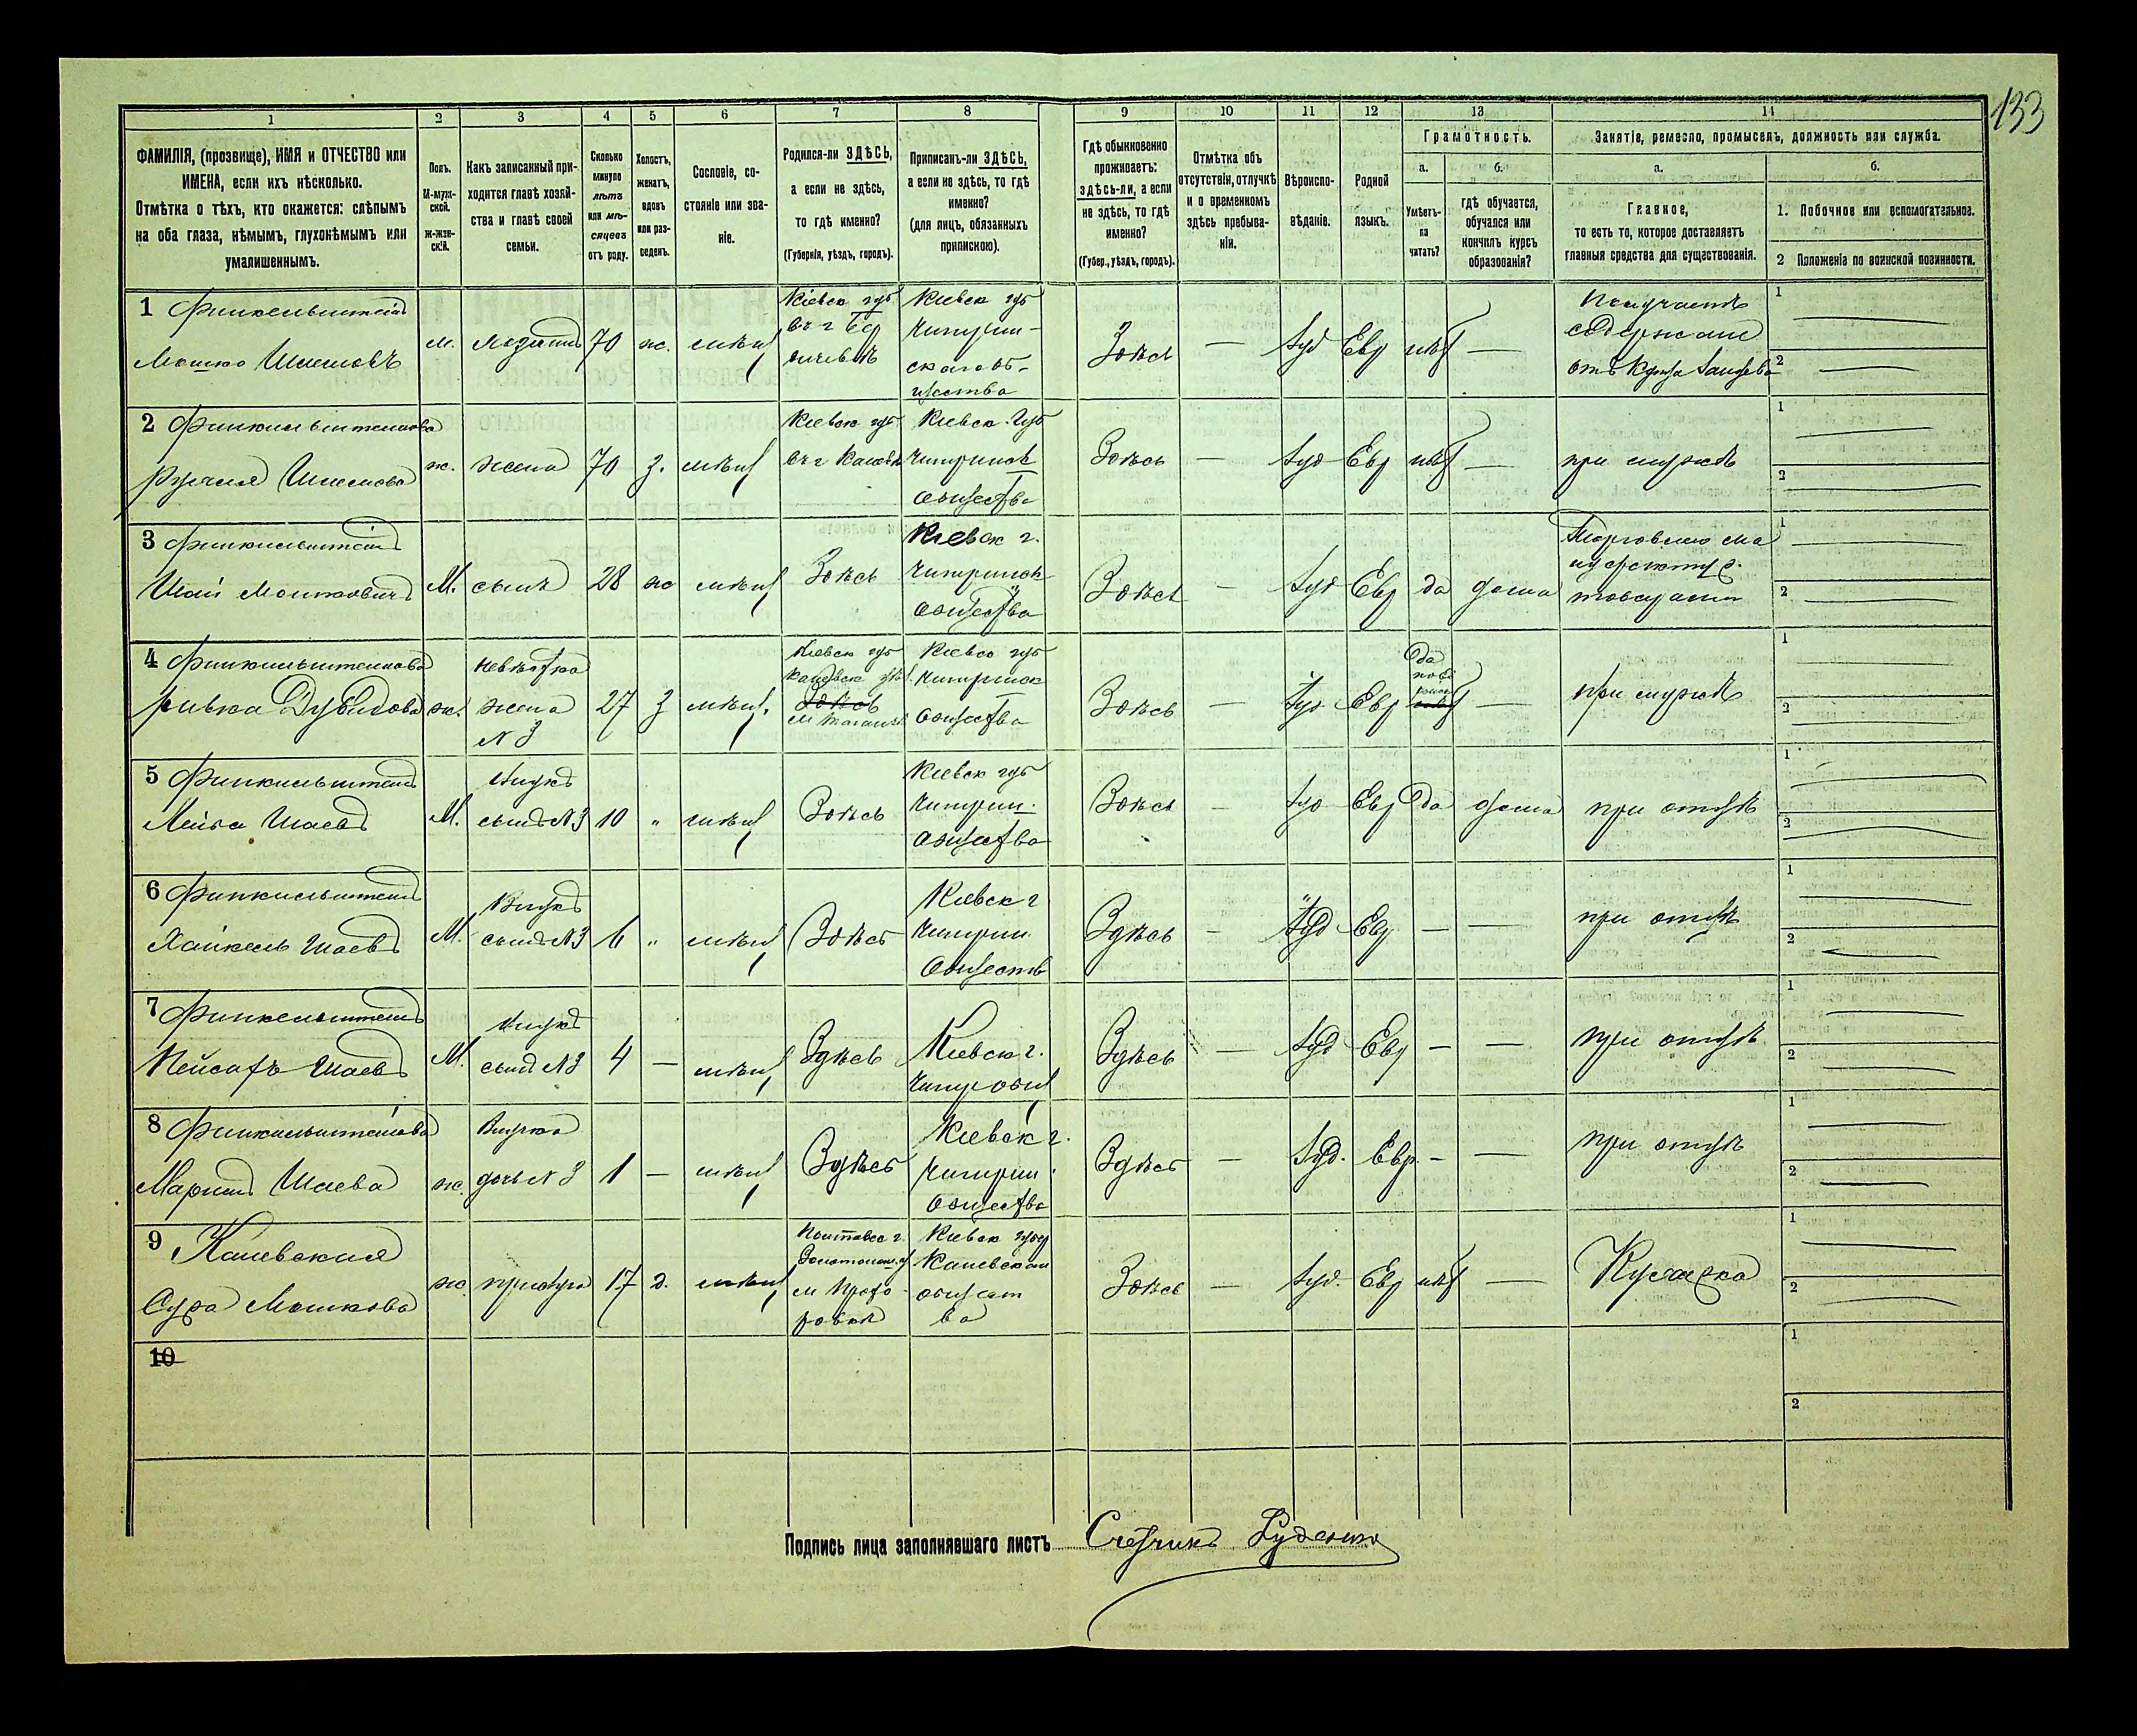 133
1 2 3 4 5 6 7 8 9 10 11 12 13 14
ФАМИЛІЯ, (прозвище), ИМЯ и ОТЧЕСТВО или
ИМЕНА, если ихъ нѣсколько.
Отмѣтка о тѣхъ, кто окажется: слѣпымъ
на оба глаза, нѣмымъ, глухонѣмымъ или
умалишеннымъ.
Полъ.
М-муж-
ской.
ж-жен-
скій.
Какъ записанный при-
ходится главѣ хозяй-
ства и главѣ своей
семьи.
Сколько
минуло
лѣтъ
или мѣ-
сяцевъ
отъ роду.
Холостъ,
женатъ,
вдовъ
или раз-
веденъ.
Сословіе, со-
стояніе или зва-
ніе.
Родился-ли ЗДѢСЬ,
а если не здѣсь,
то гдѣ именно?
(Губернія, уѣздъ, городъ).
Приписанъ-ли ЗДѢСЬ,
а если не здѣсь, то гдѣ
именно?
(для лицъ, обязанныхъ
припискою).
Гдѣ обыкновенно
проживаетъ:
здѣсь-ли, а если
не здѣсь, то гдѣ
именно?
(Губер., уѣздъ, городъ).
Отмѣтка объ
отсутствіи, отлучкѣ
и о временномъ
здѣсь пребыва-
ніи.
Вѣроиспо-
вѣданіе.
Родной
языкъ.
Грамотность.
а.
Умѣетъ-
ли
читать?
б.
гдѣ обучается,
обучался или
кончилъ курсъ
образованія?
Занятія, ремесло, промыселъ, должность или служба.
а.
Главное,
то есть то, которое доставляетъ
главныя средства для существованія.
б.
1. Побочное или вспомогательное.
2 Положеніе по воинской повинности.
1 Финкельштейнъ
Мошко Шлемовъ
м. хозяинъ 70 ж. мѣщ
Кіевск губ
въ г Бер
дичевѣ
Кіевск губ
Чигрин-
скаго об-
щества
Здѣсь — Іуд Евр нѣт —
Получаетъ
содержаніе
отъ
1
2
2 Финкельштейнова
Шлемова
ж. жена 70 з. мѣщ
Кіевск губ
въ г Каневѣ
Кіевск. Губ
Чигринск
общества
Здѣсь — Іуд Евр нѣт — при мужѣ
1
2
3 Финкельштейнъ
Шаи Мошковичъ
М. сынъ 28 ж мѣщ Здѣсь
Кіевск г.
Чигринск
общества
Здѣсь — Іуд Евр да дома
Торговля ма
товарами
1
2
4 Финкельштейнова
Ривка Дувидова
ж.
невѣстка
жена
N 3
27 з мѣщ.
Кіевск губ
Каневск
Здѣсь
Кіевск губ
Чигринск
общества
Здѣсь — Іуд Евр
Да
—
при мужѣ
1
2
5 Финкельштейнъ
Лейба Шаевъ
М.
Внукъ
сынъ N3
10 " мѣщ Здѣсь
Кіевск губ
Чигрин.
общества
Здѣсь — Іуд Евр Да дома при отцѣ
1
2
6 Финкельштейнъ
Хайкель Шаевъ
М.
Внукъ
сынъ N3
6 " мѣщ Здѣсь
Кіевск г
Чигрин
Обществ
Здѣсь — Іуд Евр — — при отцѣ
1
2
7 Финкельштейнъ
Пейсахъ Шаевъ
М.
Внукъ
сынъ N3
4 — мѣщ Здѣсь
Кіевск г.
Чигр общ
Здѣсь — Іуд Евр — — при отцѣ
1
2
8 Финкельштейнова
Шаева
ж.
Внучка
дочь N 3
1 — мѣщ Здѣсь
Кіевск г.
Чигрин.
общества
Здѣсь — Іуд. Евр. — — при отцѣ
1
2
9 Каневская
Сура Мошкова
ж. прислуга 17 д. мѣщ
Полтавск г.
Золотонош. у
м Прохо-
ровкѣ
Кіевск губер
Каневскаи
общест
ва
Здѣсь — Іуд. Евр нѣт — Кухарка
1
2
10
1
2
Подпись лица заполнявшаго листъ Счетчикъ Руденко